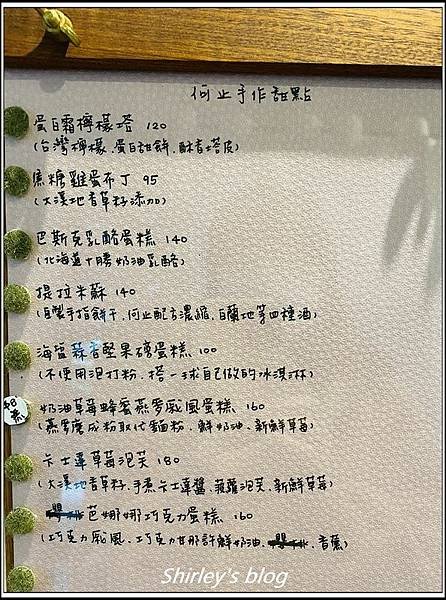 何止手作甜點
蛋白霜檸檬塔 120
(台灣檸檬、蛋白甜餅、酥香塔皮)
焦糖雞蛋布丁 95
(大溪地香草籽添加)
巴斯克乳酪蛋糕 140
(北海道十勝奶油乳酪)
提拉米蘇 140
(自製手指餅干、何止配方濃縮、白蘭地等四種酒)
海鹽蒜香堅果磅蛋糕 100
(不使用泡打粉、搭一球自己做的冰淇淋)
奶油草莓蜂蜜燕麥戚風蛋糕 160
(燕麥磨成粉取代麵粉、鮮奶油、新鮮草莓)
卡士達草莓泡芙 180
(大溪地香草籽、手煮卡士達醬、菠蘿泡芙、新鮮草莓)
芭娜娜巧克力蛋糕 160
(巧克力戚風、巧克力甘那許鮮奶油、香蕉)
Shirley's blog